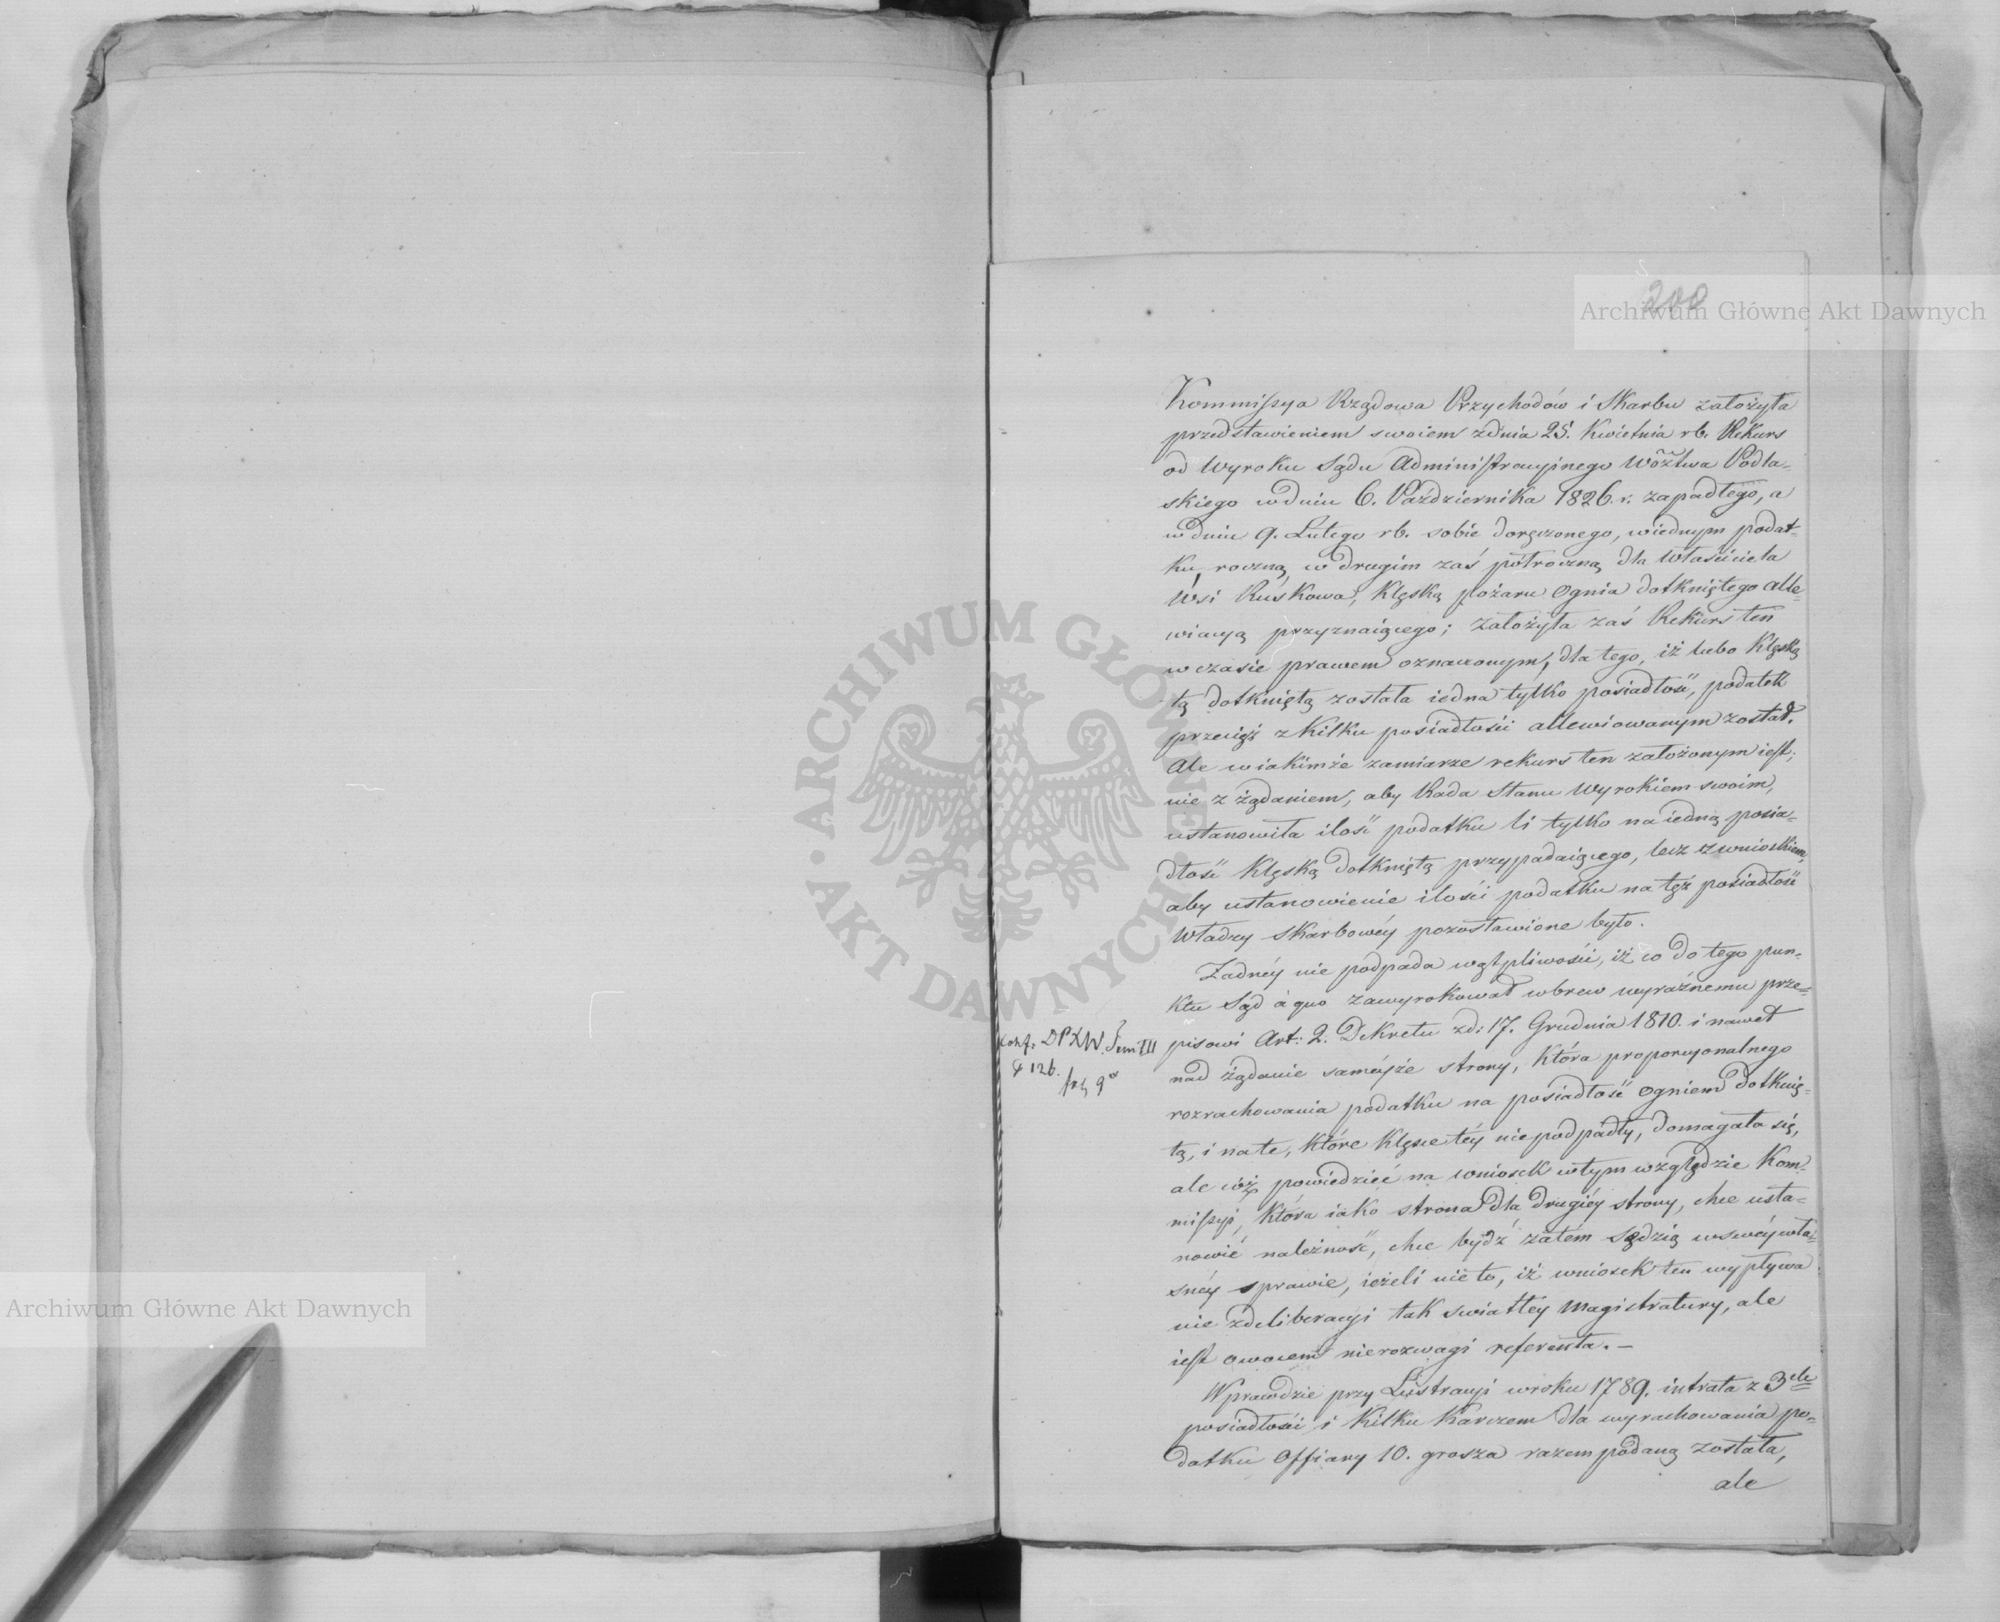 200
Archiwum Główne Akt Dawnych
Kommissya Rządowa Przychodów i Skarbu założyła
przedstawieniem swoiem zdnia 25. Kwietnia rb. Rekurs
od Wyroku Sądu Administracyinego Wóztwa Podla-
skiego wdniu 6. Października 1826. r. zapadłego, a
w dniu 9. Lutego rb. sobie doręczonego, wiednym podat-
ku, roczną, w drugim zaś półroczną dla Właściciela
Wsi Ruskowa, Klęską pożaru Ognia dotkniętego alle-
wiacyą przyznaiącego; założyła zaś Rekurs ten
w czasie prawem oznaczonym, dla tego, iż lubo Klęską
tą dotkniętą została iedna tylko posiadłość, podatek
przecięż z Kilku posiadłości allewiowanym został.
Ale w iakimże zamiarze rekurs ten założonym iest;
nie z żądaniem, aby Rada Stanu Wyrokiem swoim,
ustanowiła ilość podatku li tylko na iedną posia-
dłość Klęską dotkniętą przypadaiącego, lecz z wnioskiem,
aby ustanowienie ilości podatku na tęż posiadłość
Władzy Skarbowéy pozostawione było.
Żadnéy nie podpada wątpliwości, iż co do tego pun-
ktu Sąd à quo zawyrokował wbrew wyraźnemu prze-
pisowi Art: 2. Dekretu zd: 17. Grudnia 1810. i nawet
nad żądanie saméyże strony, Która proporcyonalnego
rozrachowania podatku na posiadłość Ogniem dotknię-
tą, i na te, Które Klęsce téy nie podpadły, domagała się,
ale cóż powiedzieć na wniosek w tym względzie Kom-
missyi, Która iako strona dla drugiéy strony, chce usta-
nowić należność, chce bydź zatém sędzią w swéy wła-
snéy sprawie, ieżeli nie to, iż wniosek ten wypływa
nie zdeliberacyi tak swiatłey Magistratury, ale
iest owocem nierozwagi referenta. –
Wprawdzie przy Lustracyi w roku 1789. intrata z 3ch
posiadłości i Kilku Karczem dla wyrachowania po-
datku Offiary 10. grosza razem podaną została,
ale
Konf: DPXW. Tom III
126.
ARCHIWUM GŁÓWNE AKT DAWNYCH
Archiwum Główne Akt Dawnych